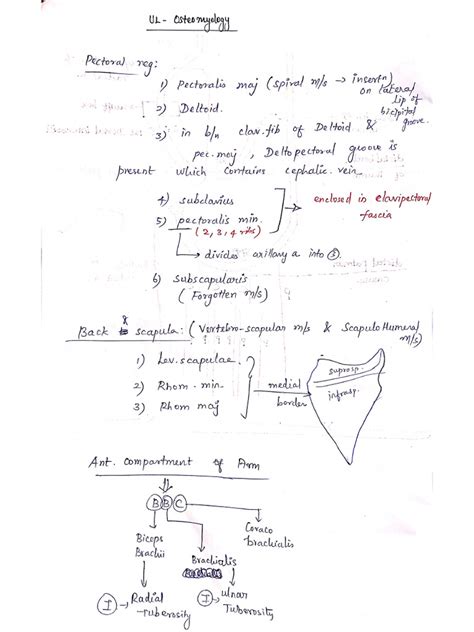 UL - Osteomyology
Pectoral reg:
1) Pectoralis maj (spiral m/s → insertn)
on lateral
lip of
bicipital
groove.
2) Deltoid.
3) in b/n clav. fib of Deltoid &
pec. maj, Deltopectoral groove is
present which contains cephalic vein
4) subclavius
5) pectoralis min.
(2, 3, 4 ribs)
enclosed in clavipectoral
fascia
divides axillary a into ③.
6) subscapularis
(Forgotten m/s)
Back & scapula: (Vertebro-scapular m/s & Scapulo Humeral
m/s)
1) Lev. scapulae.
2) Rhom. min.
3) Rhom maj
medial
border
suprosp.
infrasp.
Ant. compartment of Arm
B B C
Biceps
Brachii
Brachialis
Coraco
brachialis
I → Radial
tuberosity
I → ulnar
Tuberosity